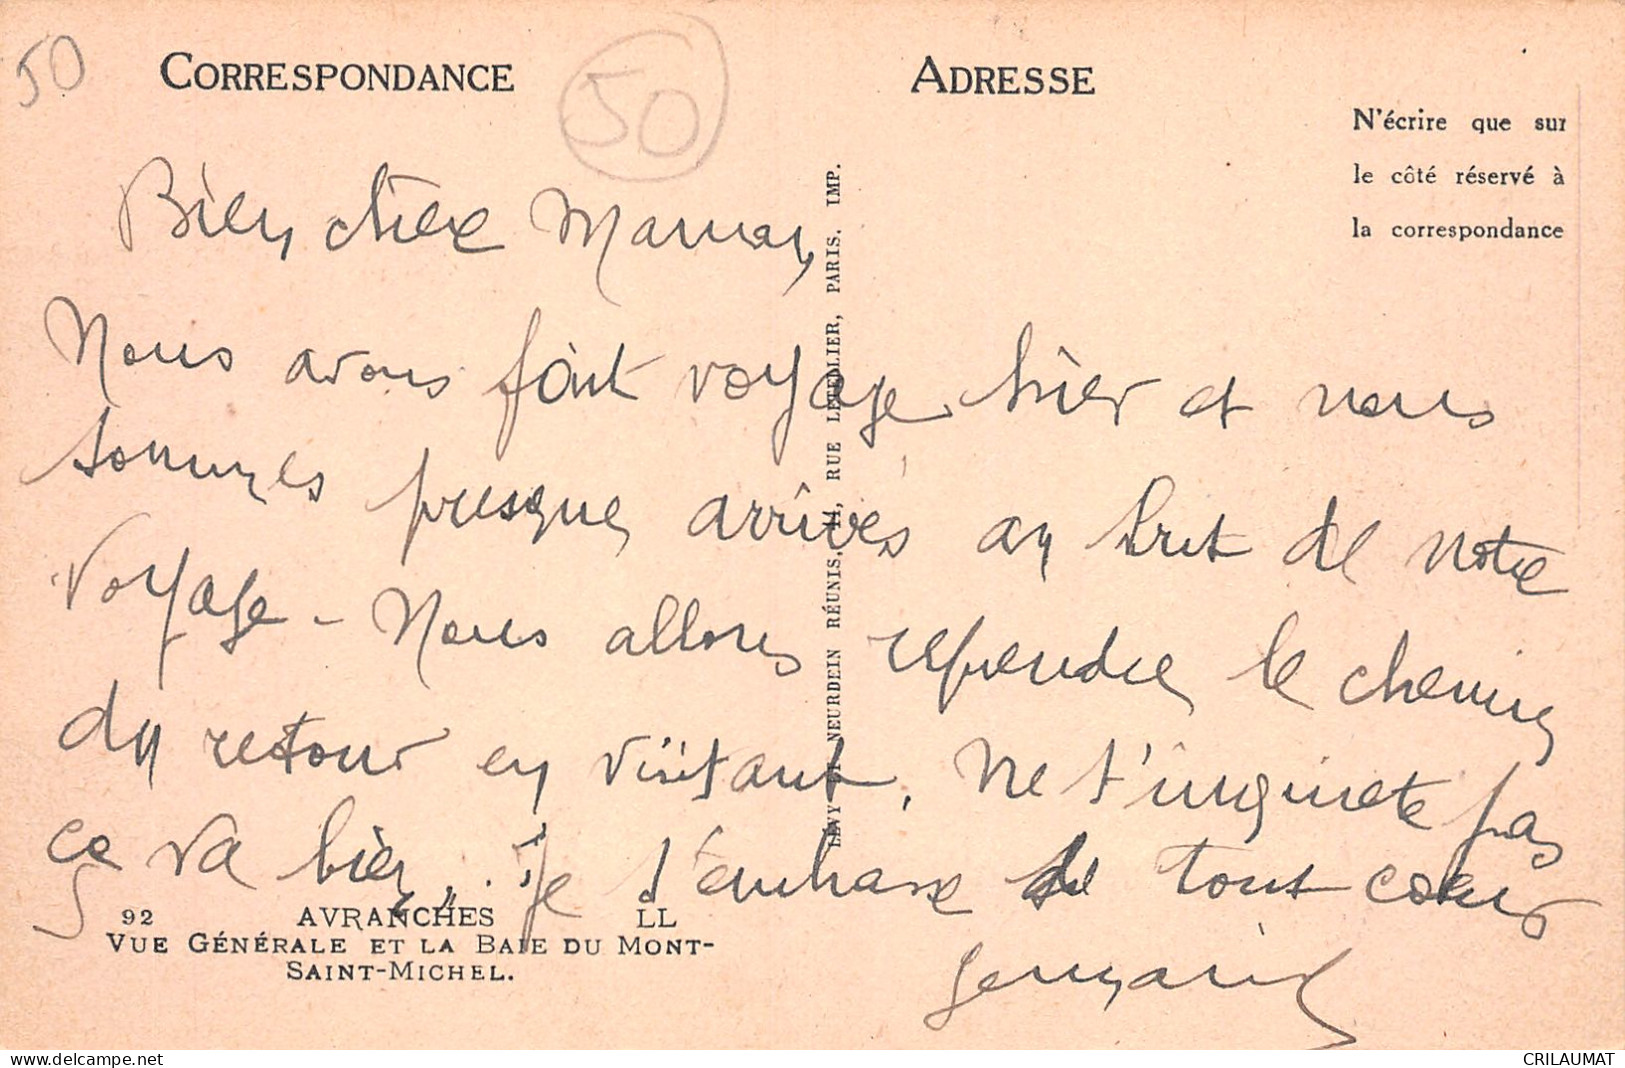 50
CORRESPONDANCE
50
ADRESSE
N'écrire que sur
le côté réservé à
la correspondance
Bien chère Maman,
Nous avons fait voyage hier et nous
sommes presque arrivés au but de notre
voyage - Nous allons reprendre le chemin
du retour en visitant. Ne t'inquiete pas
ça va bien. Je t'embrasse de tout coeur
Germain
LÉVY ET NEURDEIN RÉUNIS, 44, RUE LETELLIER, PARIS. IMP.
92 AVRANCHES LL
VUE GÉNÉRALE ET LA BAIE DU MONT-
SAINT-MICHEL.
delcampe.net
CRILAUMAT